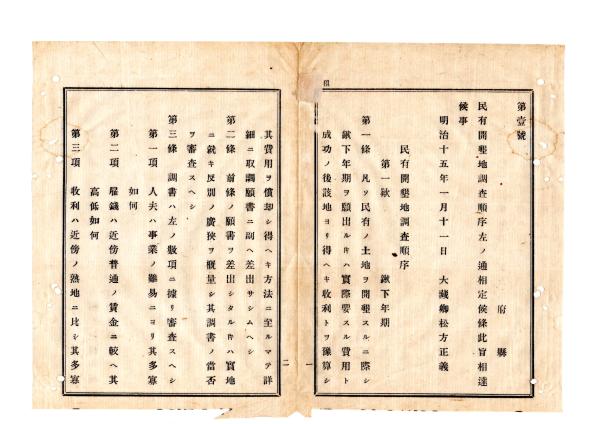 租
第壹號
府縣
民有開墾地調査順序左ノ通相定候條此旨相達
候事
明治十五年一月十一日 大藏卿松方正義
民有開墾地調査順序
第一欵 鍬下年期
第一條 凡ソ民有ノ土地ヲ開墾スルニ際シ
鍬下年期ヲ願出ルキハ實際要スル費用ト
成功ノ後該地ヨリ得ヘキ收利トヲ豫算シ
一
其費用ヲ償却シ得ヘキ方法ニ至ルマテ詳
細ニ取調願書ニ副ヘ差出サシムヘシ
第二條 前條ノ願書ヲ差出シタルキハ實地
ニ就キ反別ノ廣狹ヲ概量シ其調書ノ當否
ヲ審査スヘシ
第三條 調書ハ左ノ數項ニ據リ審査スヘシ
第一項 人夫ハ事業ノ難易ニヨリ其多寡
如何
第二項 雇錢ハ近傍普通ノ賃金ニ較ヘ其
高低如何
第三項 收利ハ近傍ノ熟地ニ比シ其多寡
二